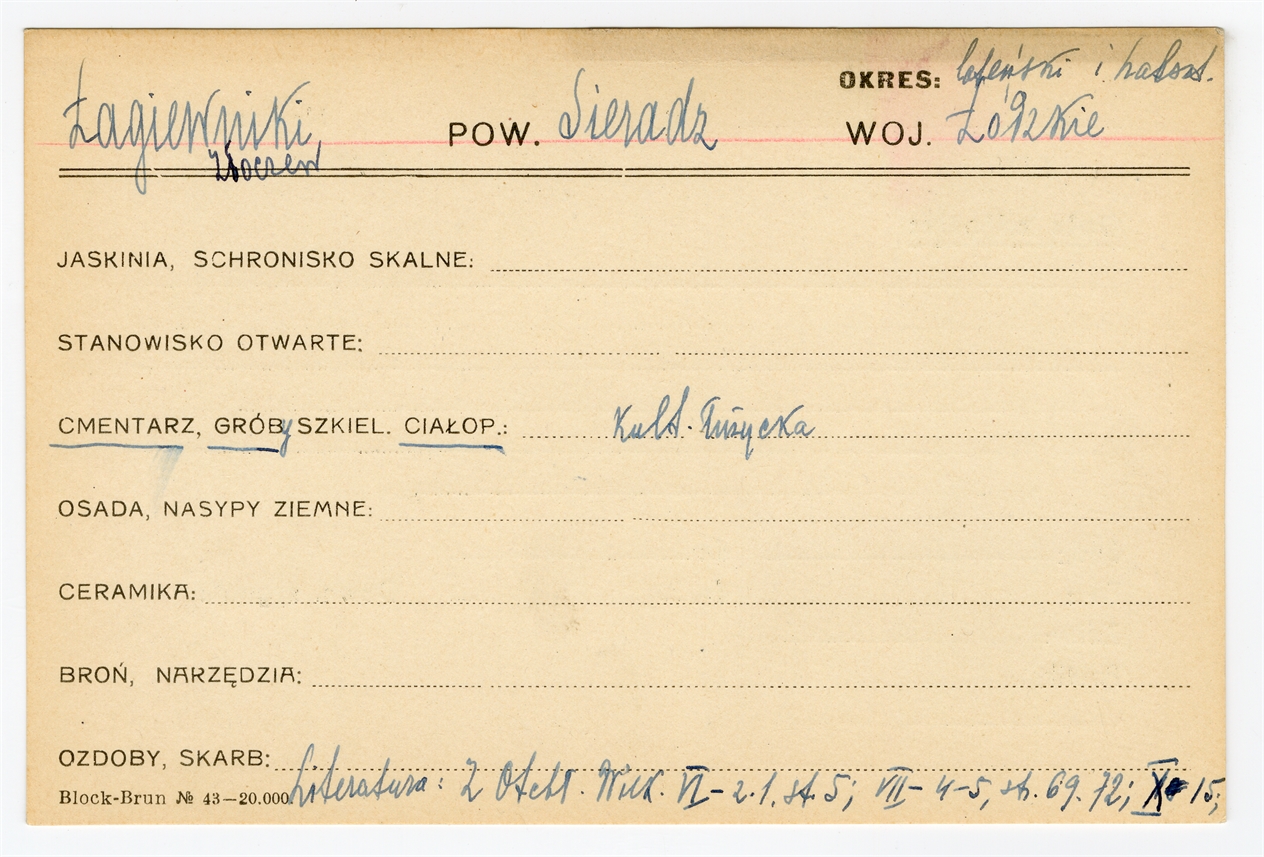 OKRES: lateński i halszt.
Łagiewniki, POW. Sieradz WOJ. Łódzkie
Złoczew
JASKINIA, SCHRONISKO SKALNE:
STANOWISKO OTWARTE:
CMENTARZ, GRÓBy SZKIEL. CIAŁOP.: Kult. Łużycka
OSADA, NASYPY ZIEMNE:
CERAMIKA:
BROŃ, NARZĘDZIA:
OZDOBY, SKARB:
Block-Brun № 43—20.000 Literatura: Z Otchł. Wiek. VI – 2.1, st. 5; VII – 4-5, str. 69. 72; 15;